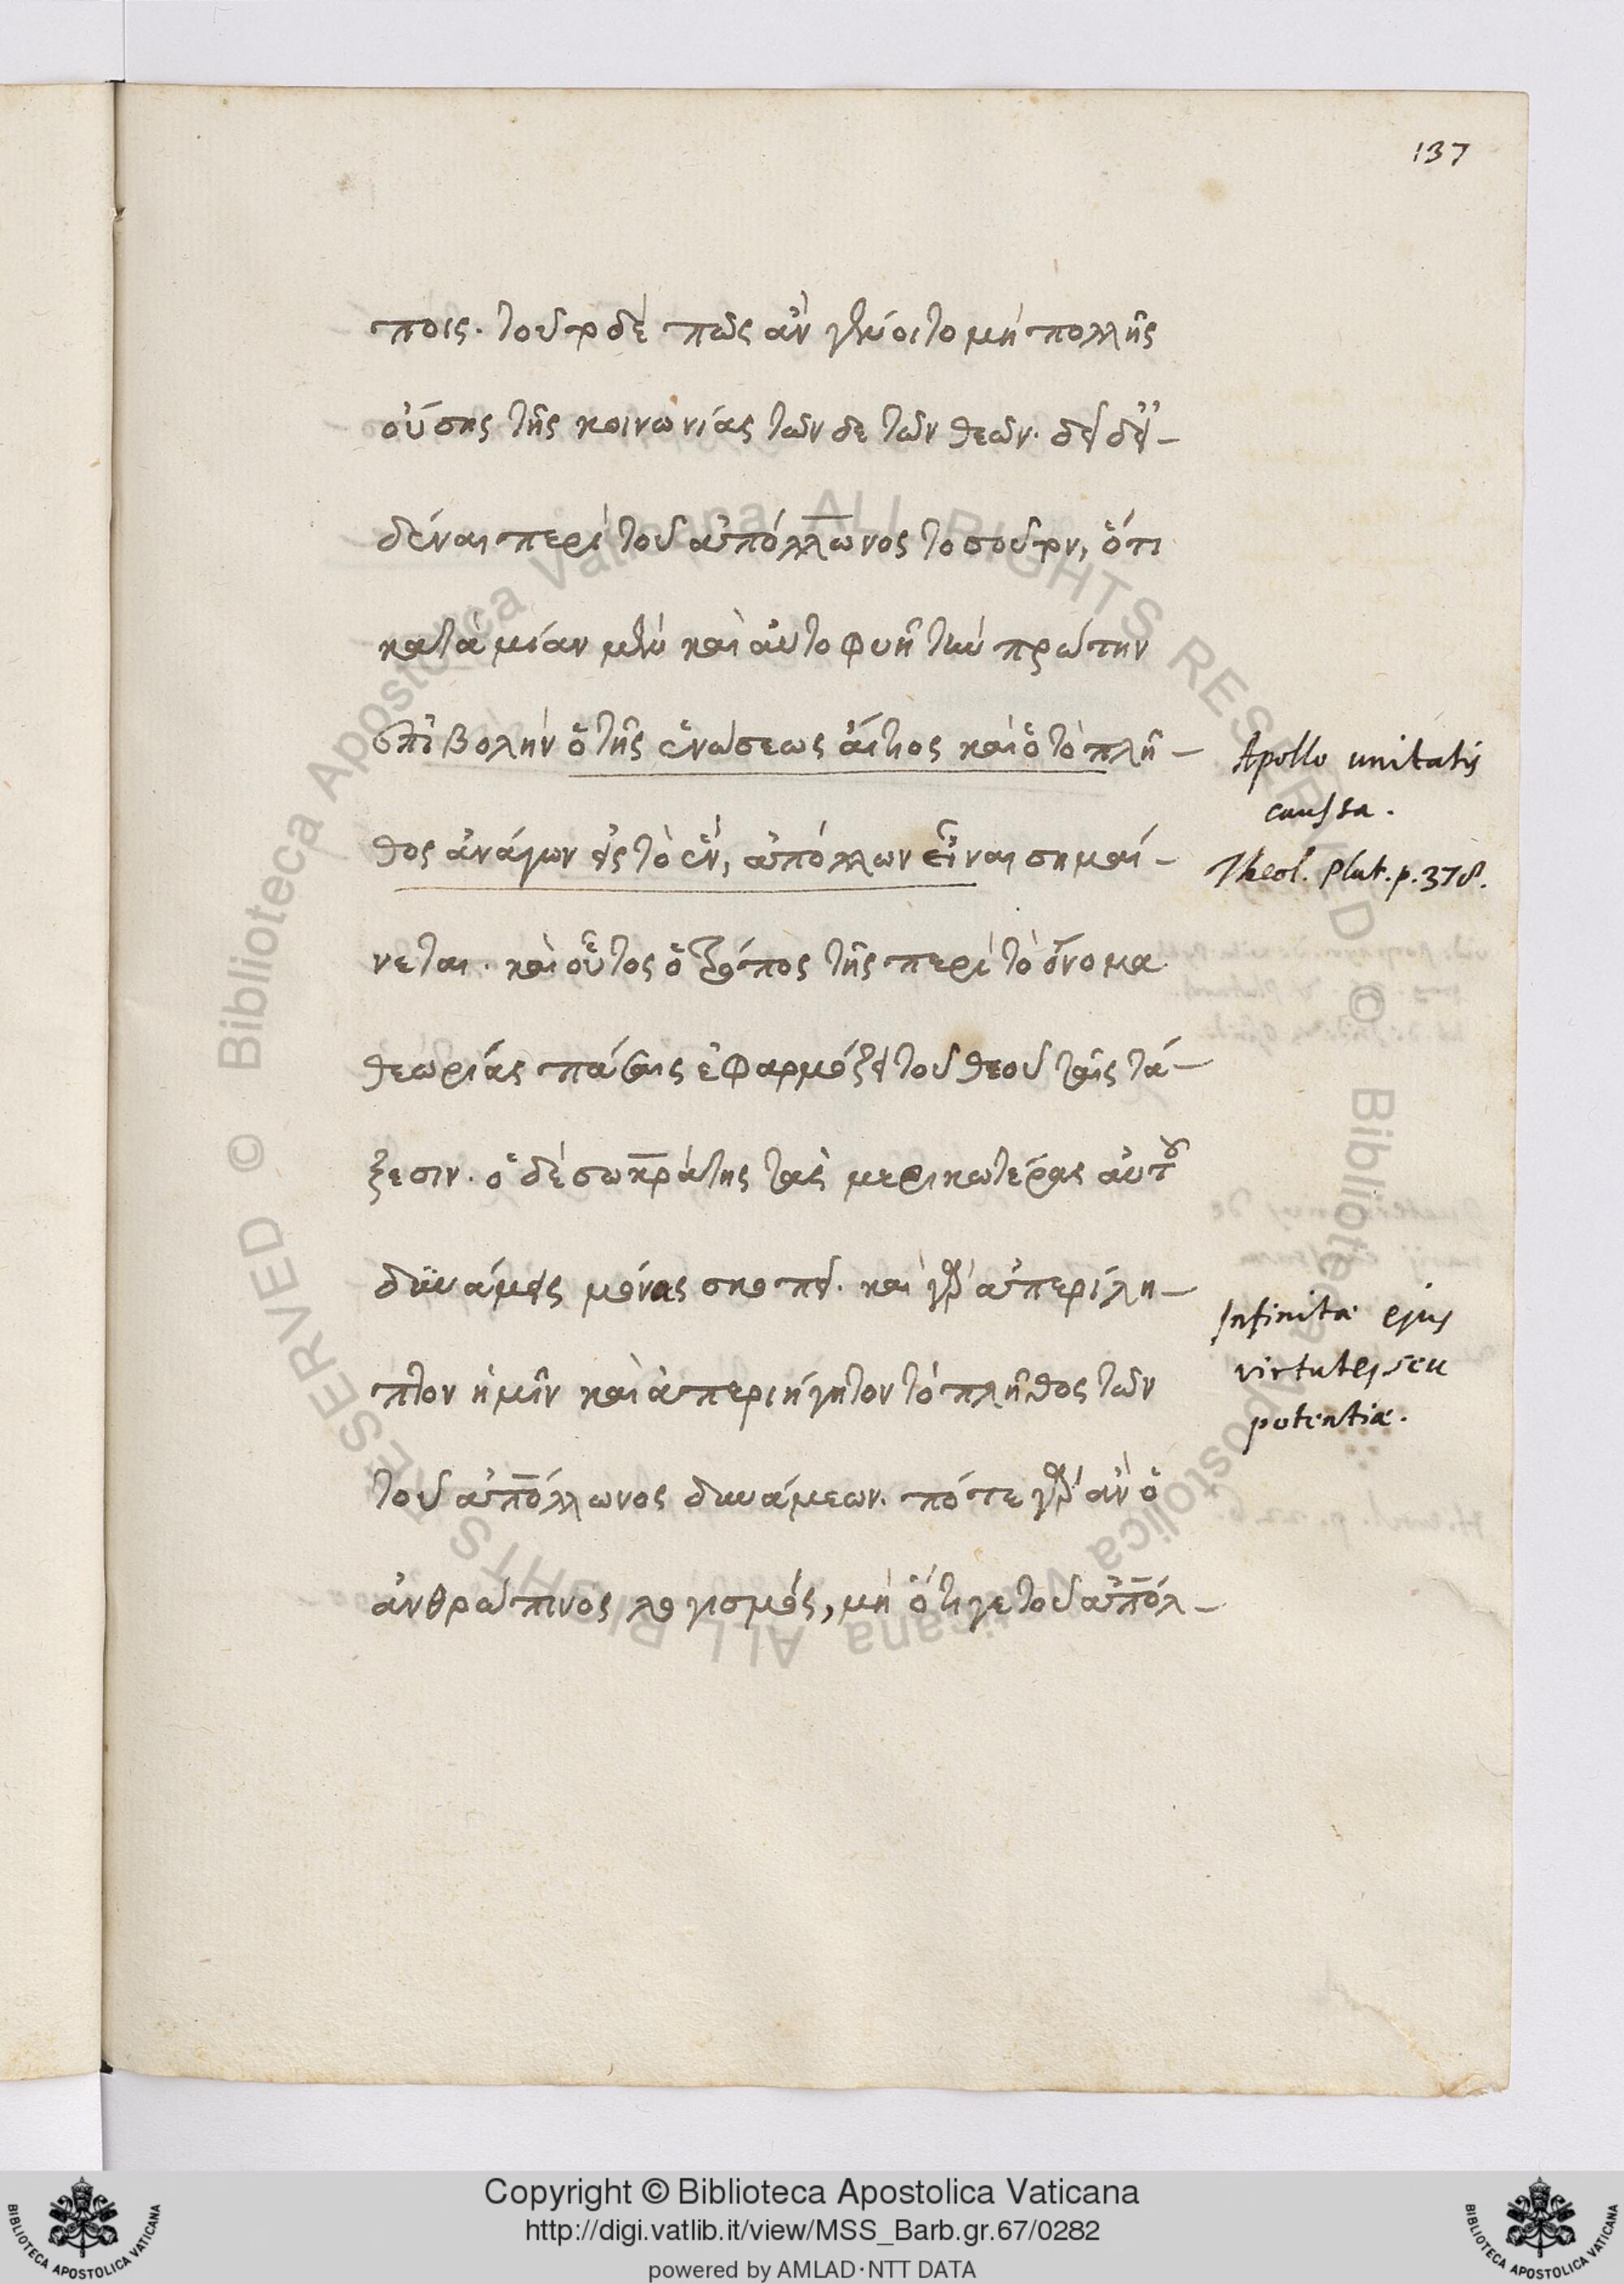 137
ποις. τοῦτο δὲ πῶς ἂν γένοιτο μὴ πολλῆς
οὔσης τῆς κοινωνίας τῶν δε τῶν θεῶν. δεῖ δὲ εἰ-
δέναι περὶ τοῦ ἀπόλλωνος τοσοῦτον, ὅτι
κατὰ μίαν μὲν καὶ αὐτοφυῆ τὴν πρώτην
ἐπιβολὴν ὁ τῆς ἑνώσεως αἴτιος καὶ ὁ τὸ πλῆ-
θος ἀνάγων εἰς τὸ ἕν, ἀπόλλων εἶναι σημαί-
νεται. καὶ οὗτος ὁ τρόπος τῆς περὶ τὸ ὄνομα
θεωρίας πάσαις ἐφαρμόζει τοῦ θεοῦ ταῖς τά-
ξεσιν. ὁ δὲ σωκράτης τὰς μερικωτέρας αὐτοῦ
δυνάμεις μόνας σκοπεῖ. καὶ γὰρ ἀπερίλη-
πτον ἡμῖν καὶ ἀπεριήγητον τὸ πλῆθος τῶν
τοῦ ἀπόλλωνος δυνάμεων. πότε γὰρ ἂν ὁ
ἀνθρώπινος λογισμός, μὴ ὅτι γε τοῦ ἀπόλ-
Apollo unitatis
caussa.
Theol. Plat. p. 378.
Infinitæ ejus
virtutes seu
potentiæ.
© Biblioteca Apostolica Vaticana ALL RIGHTS RESERVED
© Biblioteca Apostolica Vaticana ALL RIGHTS RESERVED
Copyright © Biblioteca Apostolica Vaticana
http://digi.vatlib.it/view/MSS_Barb.gr.67/0282
powered by AMLAD·NTT DATA
BIBLIOTECA APOSTOLICA VATICANA
BIBLIOTECA APOSTOLICA VATICANA